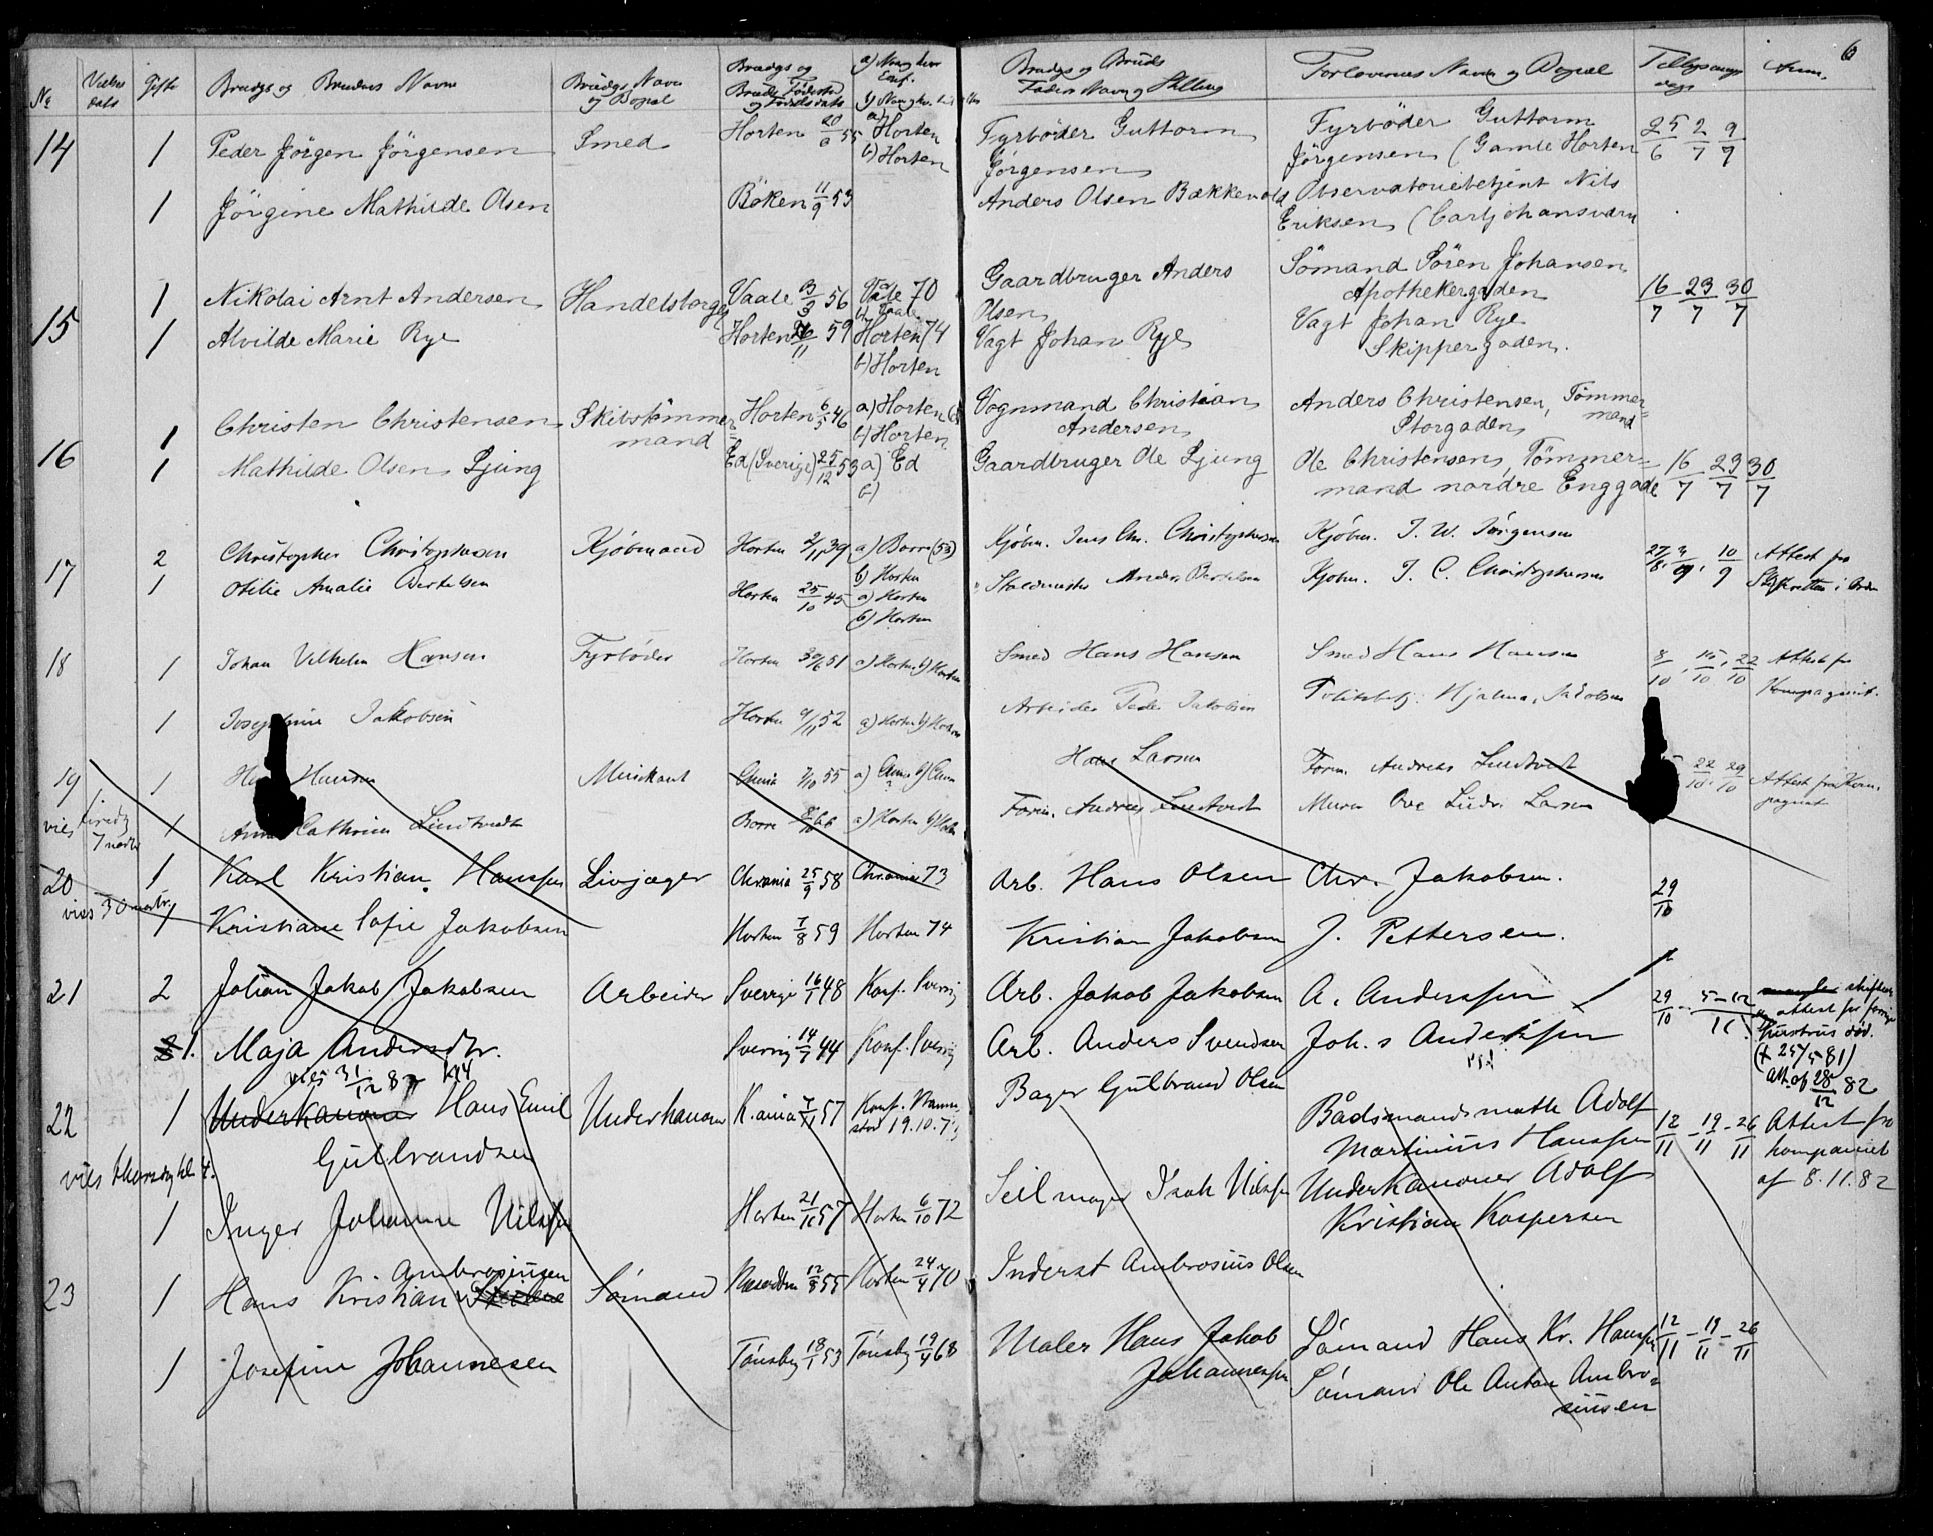 6
No Vielses dato Gifte Brudgs og Brudens Navn Brudgs Navn og Bopæl Brudgs og Bruds Fødested og Fødselsdato a) Naar og hvor Conf. b) Brudgs og Bruds Faders Navn og Stilling Forlovernes Navn og Bopæl Tillysnings dage Anm.
14 1 Peder Jörgen Jörgensen Smed Horten 20/6 55 a) Horten b) Horten Fyrböder Guttorm Jörgensen Fyrböder Guttorm Jörgensen (Gamle Horten 25/6 2/7 9/7
1 Jörgine Mathilde Olsen Böken 11/9 53 Anders Olsen Bækkevold Observatoriebetjent Nils Eriksen (Carljohansværn
15 1 Nikolai Arnt Andersen Handelsborger Vaale 3/3 56 a) Vaale 70 b) Vaale Gaardbruger Anders Olsen Sömand Sören Johansen Apothekergaden 16/7 23/7 30/7
1 Alvilde Marie Rye Horten 26/11 59 Horten 74 b) Horten Vagt Johan Rye Vagt Johan Rye Skippergaden.
16 1 Christen Christensen Skibstömmermand Horten 6/5 46 a) Horten b) Horten Vognmand Christian Andersen Anders Christensen, Tömmer=mand Storgaden
1 Mathilde Olsen Ljung Ed (Sverige) 25/12 53 a) Ed b) Gaardbruger Ole Ljung Ole Christensen, Tömmer=mand nordre Enggade 16/7 23/7 30/7
17 2 Christopher Christophersen Kjöbmand Horten 2/11 39 a) Borre (53) b) Horten Kjöbm. Jens Chr. Christophersen Kjöbm. J. W. Jörgensen 27/8. 3/9. 10/9 Attest fra Skifteretten i Orden
1 Otilie Amalie Bertelsen Horten 25/10 45 a) Horten b) Horten Anders Bertelsen Kjöbm. J. C. Christophersen
18 1 Johan Vilhelm Hansen Fyrböder Horten 30/6 51 a) Horten b) Horten Smed Hans Hansen Smed Hans Hansen 8/10. 15/10. 22/10 Attest fra Kompagniet.
1 Josephine Jakobsen Horten 9/11 52 a) Horten b) Horten Arbeider Peder Jakobsen Politibetj. Hjalmar Jakobsen
19 1 Hansen Musikant Chria 7/10 55 a) Chria b) Chria Hans Larsen Form. Andreas Lindtvedt 22/10. 29/10 Attest fra Kompagniet
vies 7 1 Anna Cathrine Lindtvedt Borre a) Horten b) Horten Form. Andreas Lindtvedt Murer Ove Ludv. Larsen
20 1 Karl Kristian Hanssen Livjæger Chrania 25/9 58 Chrania 73 Arb. Hans Olsen Chr. Jakobsen. 29/10
vies 30 1 Kristiane Sofie Jakobsen Horten 7/8 59 Horten 74 Kristian Jakobsen J. Pettersen.
21 2 Johan Jakob Jakobsen Arbeider Sverrige 16/1 48 Konf. Sverrig Arb. Jakob Jakobsen A. Anderssen 29/10 - 5-12/11 mangler skifteattest for forrige Hustrus död. (+ 25/5 81) Att. af 28/12 82
1. Maja Andersdtr. Sverrig 14/7 44 Konf. Sverrig Arb. Anders Svendsen Joh.s Anderssen
vies 31/12 82 kl 4
22 1 Underkanoner Hans Emil Gulbrandsen Underkanoner K.ania 7/11 57 Konf. 19.10.73 Bager Gulbrand Olsen Bådsmandsmath Adolf Martinius Hanssen 12/11 - 19/11 - 26/11 Attest fra kompaniet af 8.11.82
vies kl 4.
1 Inger Johanne Nilssen Horten 21/11 57 Horten 6/10 72 Seilmager Isak Nilssen Underkanoner Adolf Kristian Kaspersen
23 1 Hans Kristian Ambrosiussen Sömand 12/8 55 Horten 24/4 70 Inderst Ambrosius Olsen Sömand Hans Kr. Hanssen 12/11 - 19/11 - 26/11
1 Josefine Johannesen Tönsberg 18/1 53 Tönsberg 19/4 68 Maler Hans Jakob Johannessen Sömand Ole Anton Ambrosiussen